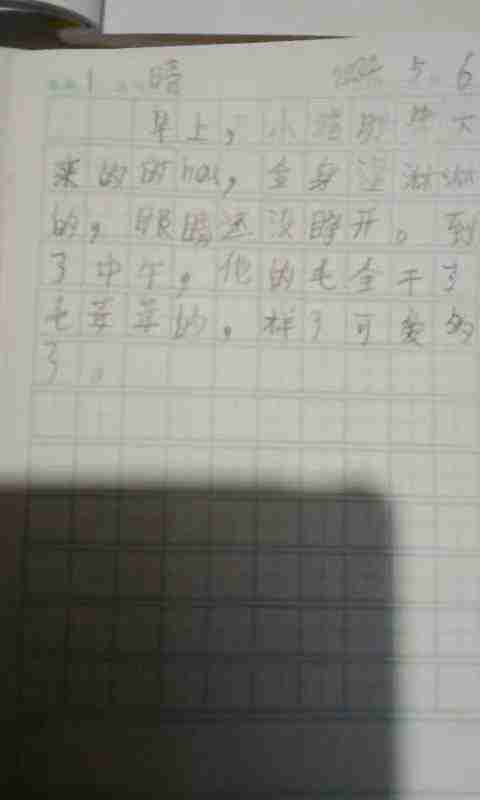 1 晴 5 6
早上，小 刚 出
来的的hou，全身湿淋淋
的，眼睛还没睁开。到
了中午，他的毛全干了
毛茸茸的，样了可爱的
了。